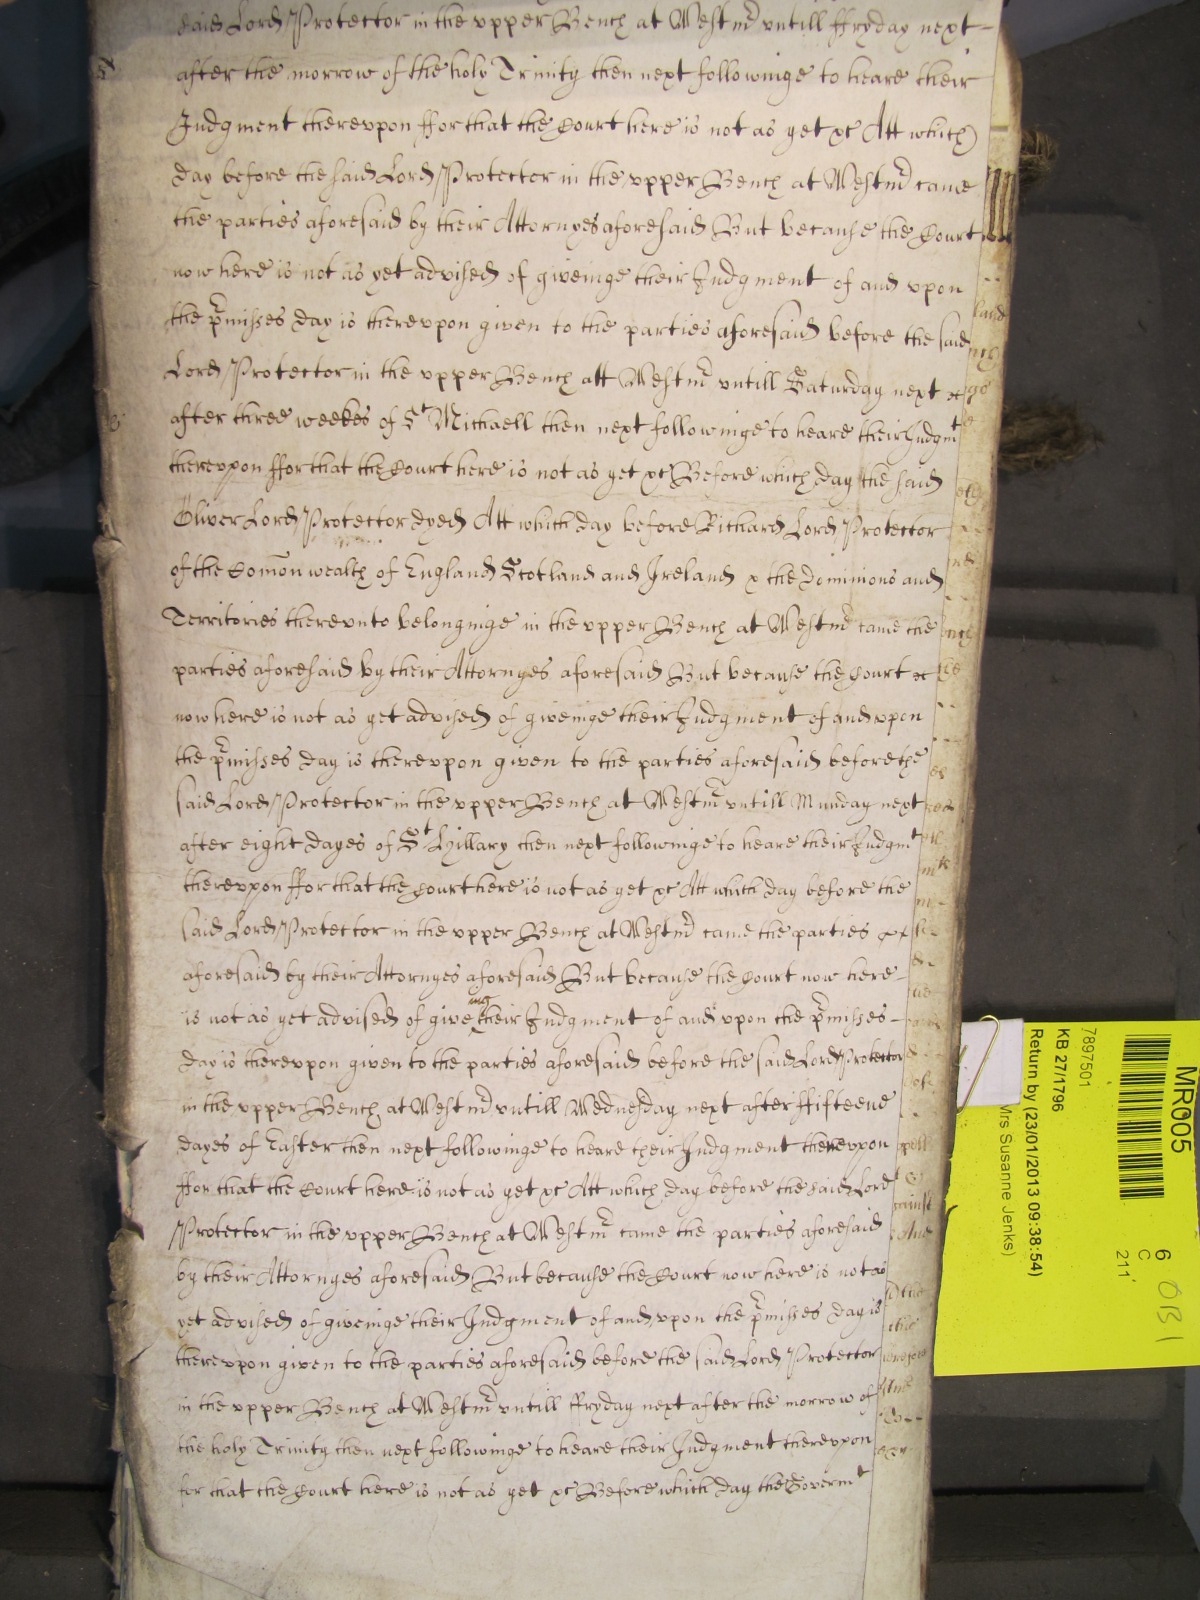 said Lord Protector in the vpper Bench at Westmr vntill ffryday next
after the morrow of the holy Trinity then next followinge to heare their
Judgment therevpon ffor that the Court here is not as yet xc Att which
day before the said Lord Protector in the vpper Bench at Westmr came
the parties aforesaid by their Attornyes aforesaid But because the Court
now here is not as yet advised of giveinge their Judgment of and vpon
the prmisses day is therevpon given to the parties aforesaid before the said
Lord Protector in the vpper Bench att Westmr vntill Saturday next
after three weekes of St Michaell then next followinge to heare their Judgmt
therevpon ffor that the Court here is not as yet xc Before which day the said
Oliver Lord Protector dyed Att which day before Richard Lord Protector
of the Comon wealth of England Scotland and Ireland & the dominions and
Territories therevnto belonginge in the vpper Bench at Westmr came the
parties aforesaid by their Attornyes aforesaid But because the Court
now here is not as yet advised of giveinge their Judgment of and vpon
the prmisses day is therevpon given to the parties aforesaid before the
said Lord Protector in the vpper Bench at Westmr vntill Munday next
after eight dayes of St Hillary then next followinge to heare their Judgmt
therevpon ffor that the Court here is not as yet xc Att which day before the
said Lord Protector in the vpper Bench at Westmr came the parties
aforesaid by their Attornyes aforesaid But because the Court now here
is not as yet advised of giveing their Judgment of and vpon the prmisses
day is therevpon given to the parties aforesaid before the said Lord Protector
in the vpper Bench at Westmr vntill Wednesday next after ffifteene
dayes of Easter then next followinge to heare their Judgment therevpon
ffor that the Court here is not as yet xc Att which day before the said Lord
Protector in the vpper Bench at Westmr came the parties aforesaid
by their Attornyes aforesaid But because the Court now here is not as
yet advised of giveinge their Judgment of and vpon the prmisses day is
therevpon given to the parties aforesaid before the said Lord Protector
in the vpper Bench at Westmr vntill ffryday next after the morrow of
the holy Trinity then next followinge to heare their Judgment therevpon
for that the Court here is not as yet xc Before which day the Governmt
MR005
6
C
211'
7897501
KB 27/1796
Return by (23/01/2013 09:38:54)
Mrs Susanne Jenks)